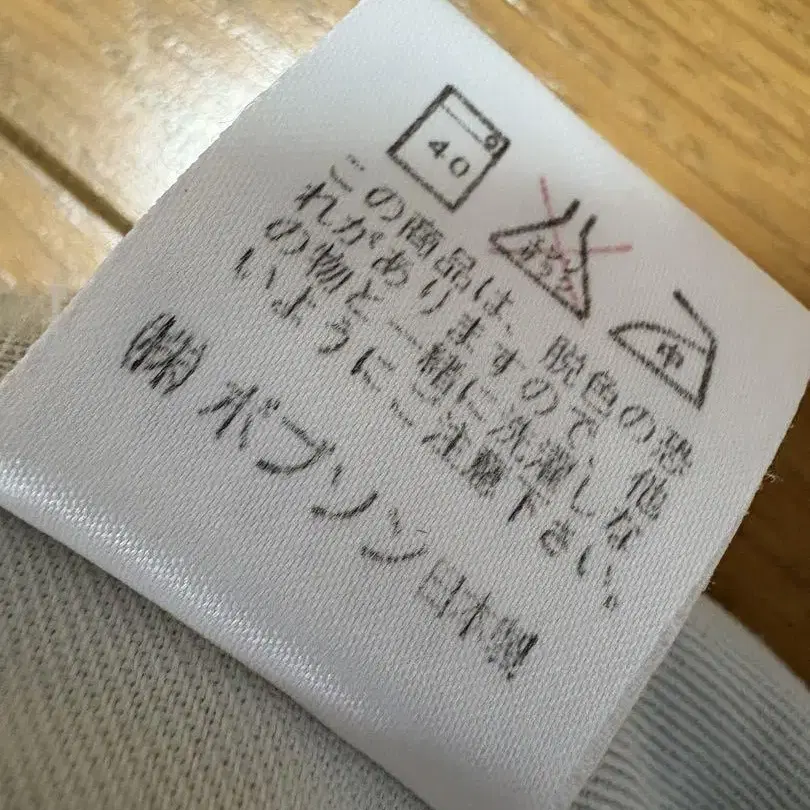 40
エンソ
サラシ
中
この商品は、脱色の恐
れがありますので、他
の物と一緒に洗濯しな
いようにご注意下さい。
㈱ボブソン日本製